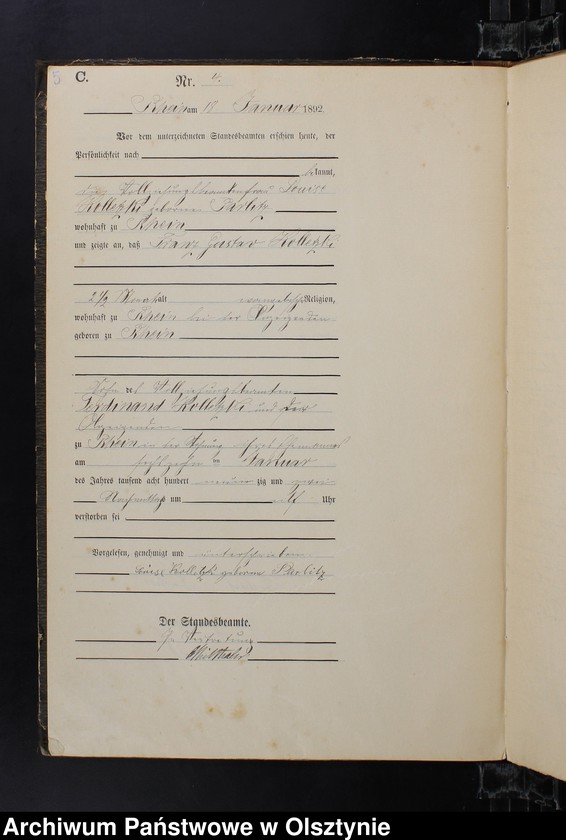 5 C. Nr. 4.
Rhein am 18 Januar 1892.
Vor dem unterzeichneten Standesbeamten erschien heute, der
Persönlichkeit nach
bekannt,
die Vollziehungsbeamtenfrau Louise
Kolletzki geborene Parlitz
wohnhaft zu Rhein
und zeigte an, daß Franz Gustav Kolletzki
2 1/2 Monat alt evangelischer Religion,
wohnhaft zu Rhein bei der Anzeigenden
geboren zu Rhein
Sohn des Vollziehungsbeamten
Ferdinand Kolletzki und der
Anzeigenden
zu Rhein in der Wohnung ihres Ehemannes
am Januar
des Jahres tausend acht hundert neunzig und zwei
Nachmittags um Uhr
verstorben sei
Vorgelesen, genehmigt und unterschrieben
Louise Kolletzki geborene Parlitz
Der Standesbeamte.
In Vertretung
Archiwum Państwowe w Olsztynie